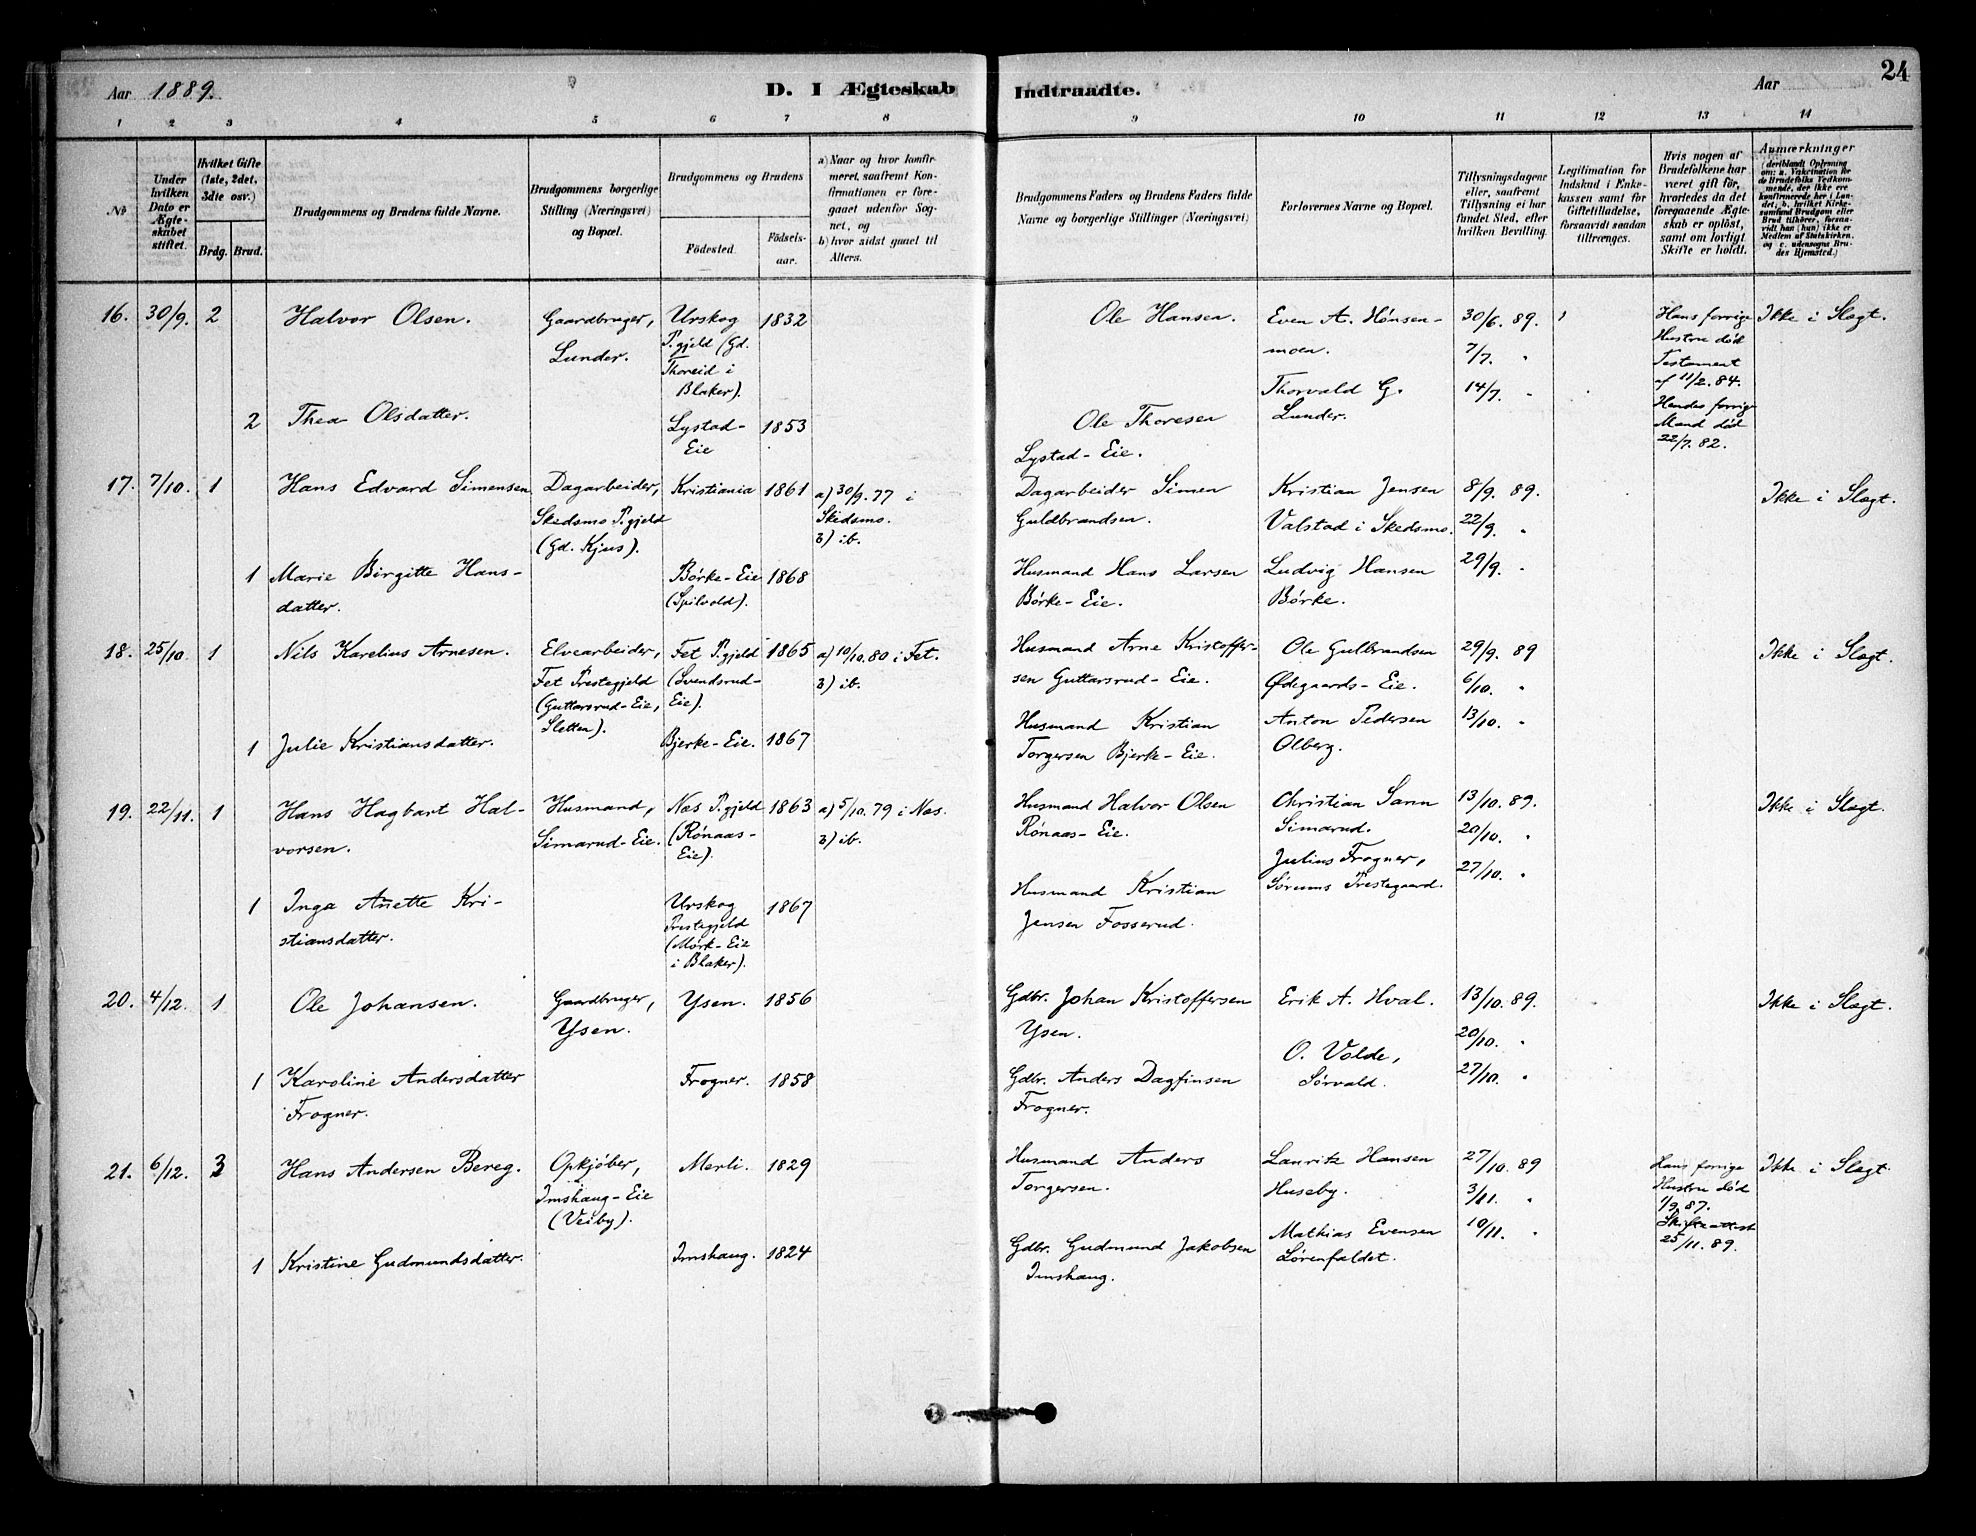 24
Aar 1889. D. I Ægteskab Indtraadte. Aar
1 2 3 4 5 6 7 8 9 10 11 12 13 14
No
Under hvilken Dato er Ægteskabet stiftet.
Hvilket Gifte (1ste, 2det, 3dte osv.)
Brdg. Brud.
Brudgommens og Brudens fulde Navne.
Brudgommens borgerlige Stilling (Næringsvei) og Bopæl.
Brudgommens og Brudens
Fødested. Fødsels-aar.
a) Naar og hvor konfirmeret, saafremt Konfirmationen er foregaaet udenfor Sognet, og
b) hvor sidst gaaet til Alters.
Brudgommens Faders og Brudens Faders fulde Navne og borgerlige Stillinger (Næringsvei)
Forlovernes Navne og Bopæl.
Tillysningsdagene eller, saafremt Tillysning ei har fundet Sted, efter hvilken Bevilling.
Legitimation for Indskud i Enkekassen samt for Giftetilladelse, forsaavidt saadan tiltrænges.
Hvis nogen af Brudefolkene har været gift før, hvorledes da det foregaaende Ægteskab er opløst, samt om lovligt Skifte er holdt.
Anmærkninger (deriblandt Oplysning om: a. Vakcination for de Brudefolks Vedkommende, der ikke ere konfirmerede her i Landet, b. hvilket Kirkesamfund Brudgom eller Brud tilhører, forsaavidt han (hun) ikke er Medlem af Statskirken, og c. udensogns Brudes Hjemsted.)
16. 30/9. 2 Halvor Olsen. Gaardbruger, Urskog 1832 Ole Hansen. Even A. Hønsen- 30/6. 89. 1 Hans forrige Ikke i Slægt.
Lunder. P.gjeld (Gd. moen. 7/7. " Hustru død
Thoreid i Testament
Blaker). Thorvald G. 14/7. " af 11/2. 84.
2 Thea Olsdatter. Lystad- 1853 Ole Thoresen Lunder. Hendes forrige
Eie Lystad-Eie. Mand død
22/7. 82.
17. 7/10. 1 Hans Edvard Simensen Dagarbeider, Kristiania 1861 a) 30/9. 77 i Dagarbeider Simen Kristian Jensen 8/9. 89. Ikke i Slægt.
Skedsmo P.gjeld Skedsmo. Guldbrandsen. Valstad i Skedsmo. 22/9. "
(Gd. Kjus). b) ib.
1 Marie Birgitte Hans- Børke-Eie 1868 Husmand Hans Larsen Ludvig Hansen 29/9. "
datter. (Spilvold). Børke-Eie. Børke.
18. 25/10. 1 Nils Karelius Arnesen. Elvearbeider, Fet P.gjeld 1865 a) 10/10. 80 i Fet. Husmand Arne Kristoffer- Ole Gulbrandsen 29/9. 89 Ikke i Slægt.
Fet Prestegjeld (Svendsrud- b) ib. sen Guttarsrud-Eie. Ødegaards-Eie. 6/10. "
(Guttarsrud-Eie, Eie).
Sletten). Husmand Kristian Anton Pedersen 13/10. "
1 Julie Kristiansdatter. Bjerke-Eie. 1867 Torgersen Bjerke-Eie. Olberg.
19. 22/11. 1 Hans Hagbart Hal- Husmand, Næs P.gjeld 1863 a) 5/10. 79 i Næs. Husmand Halvor Olsen Christian Sann 13/10. 89. Ikke i Slægt.
vorsen. Simarud-Eie. (Rønaas- b) ib. Rønaas-Eie. Simarud. 20/10. "
Eie). Julius Frogner, 27/10. "
1 Inga Anette Kri- Urskog 1867 Husmand Kristian Sørums Prestegaard.
stiansdatter. Prestegjeld Jensen Fosserud.
(Mørk-Eie
i Blaker).
20. 4/12. 1 Ole Johansen. Gaardbruger, Ysen. 1856 Gdbr. Johan Kristoffersen Erik A. Hval. 13/10. 89. Ikke i Slægt.
Ysen. Ysen. 20/10. "
O. Volde,
1 Karoline Andersdatter Frogner. 1858 Gdbr. Anders Dagfinsen Sørvald. 27/10. "
Frogner. Frogner.
21. 6/12. 3 Hans Andersen Bereg. Opkjøber, Merli. 1829 Husmand Anders Lauritz Hansen 27/10. 89 Hans forrige Ikke i Slægt.
Imshaug-Eie Torgersen. Huseby. 3/11. " Hustru død
(Veiby). 1/9. 87.
Mathias Evensen 10/11. " Skifteattest
1 Kristine Gudmundsdatter. Imshaug. 1824 Gdbr. Gudmund Jakobsen Sørenfaldet. 25/11. 89.
Imshaug.